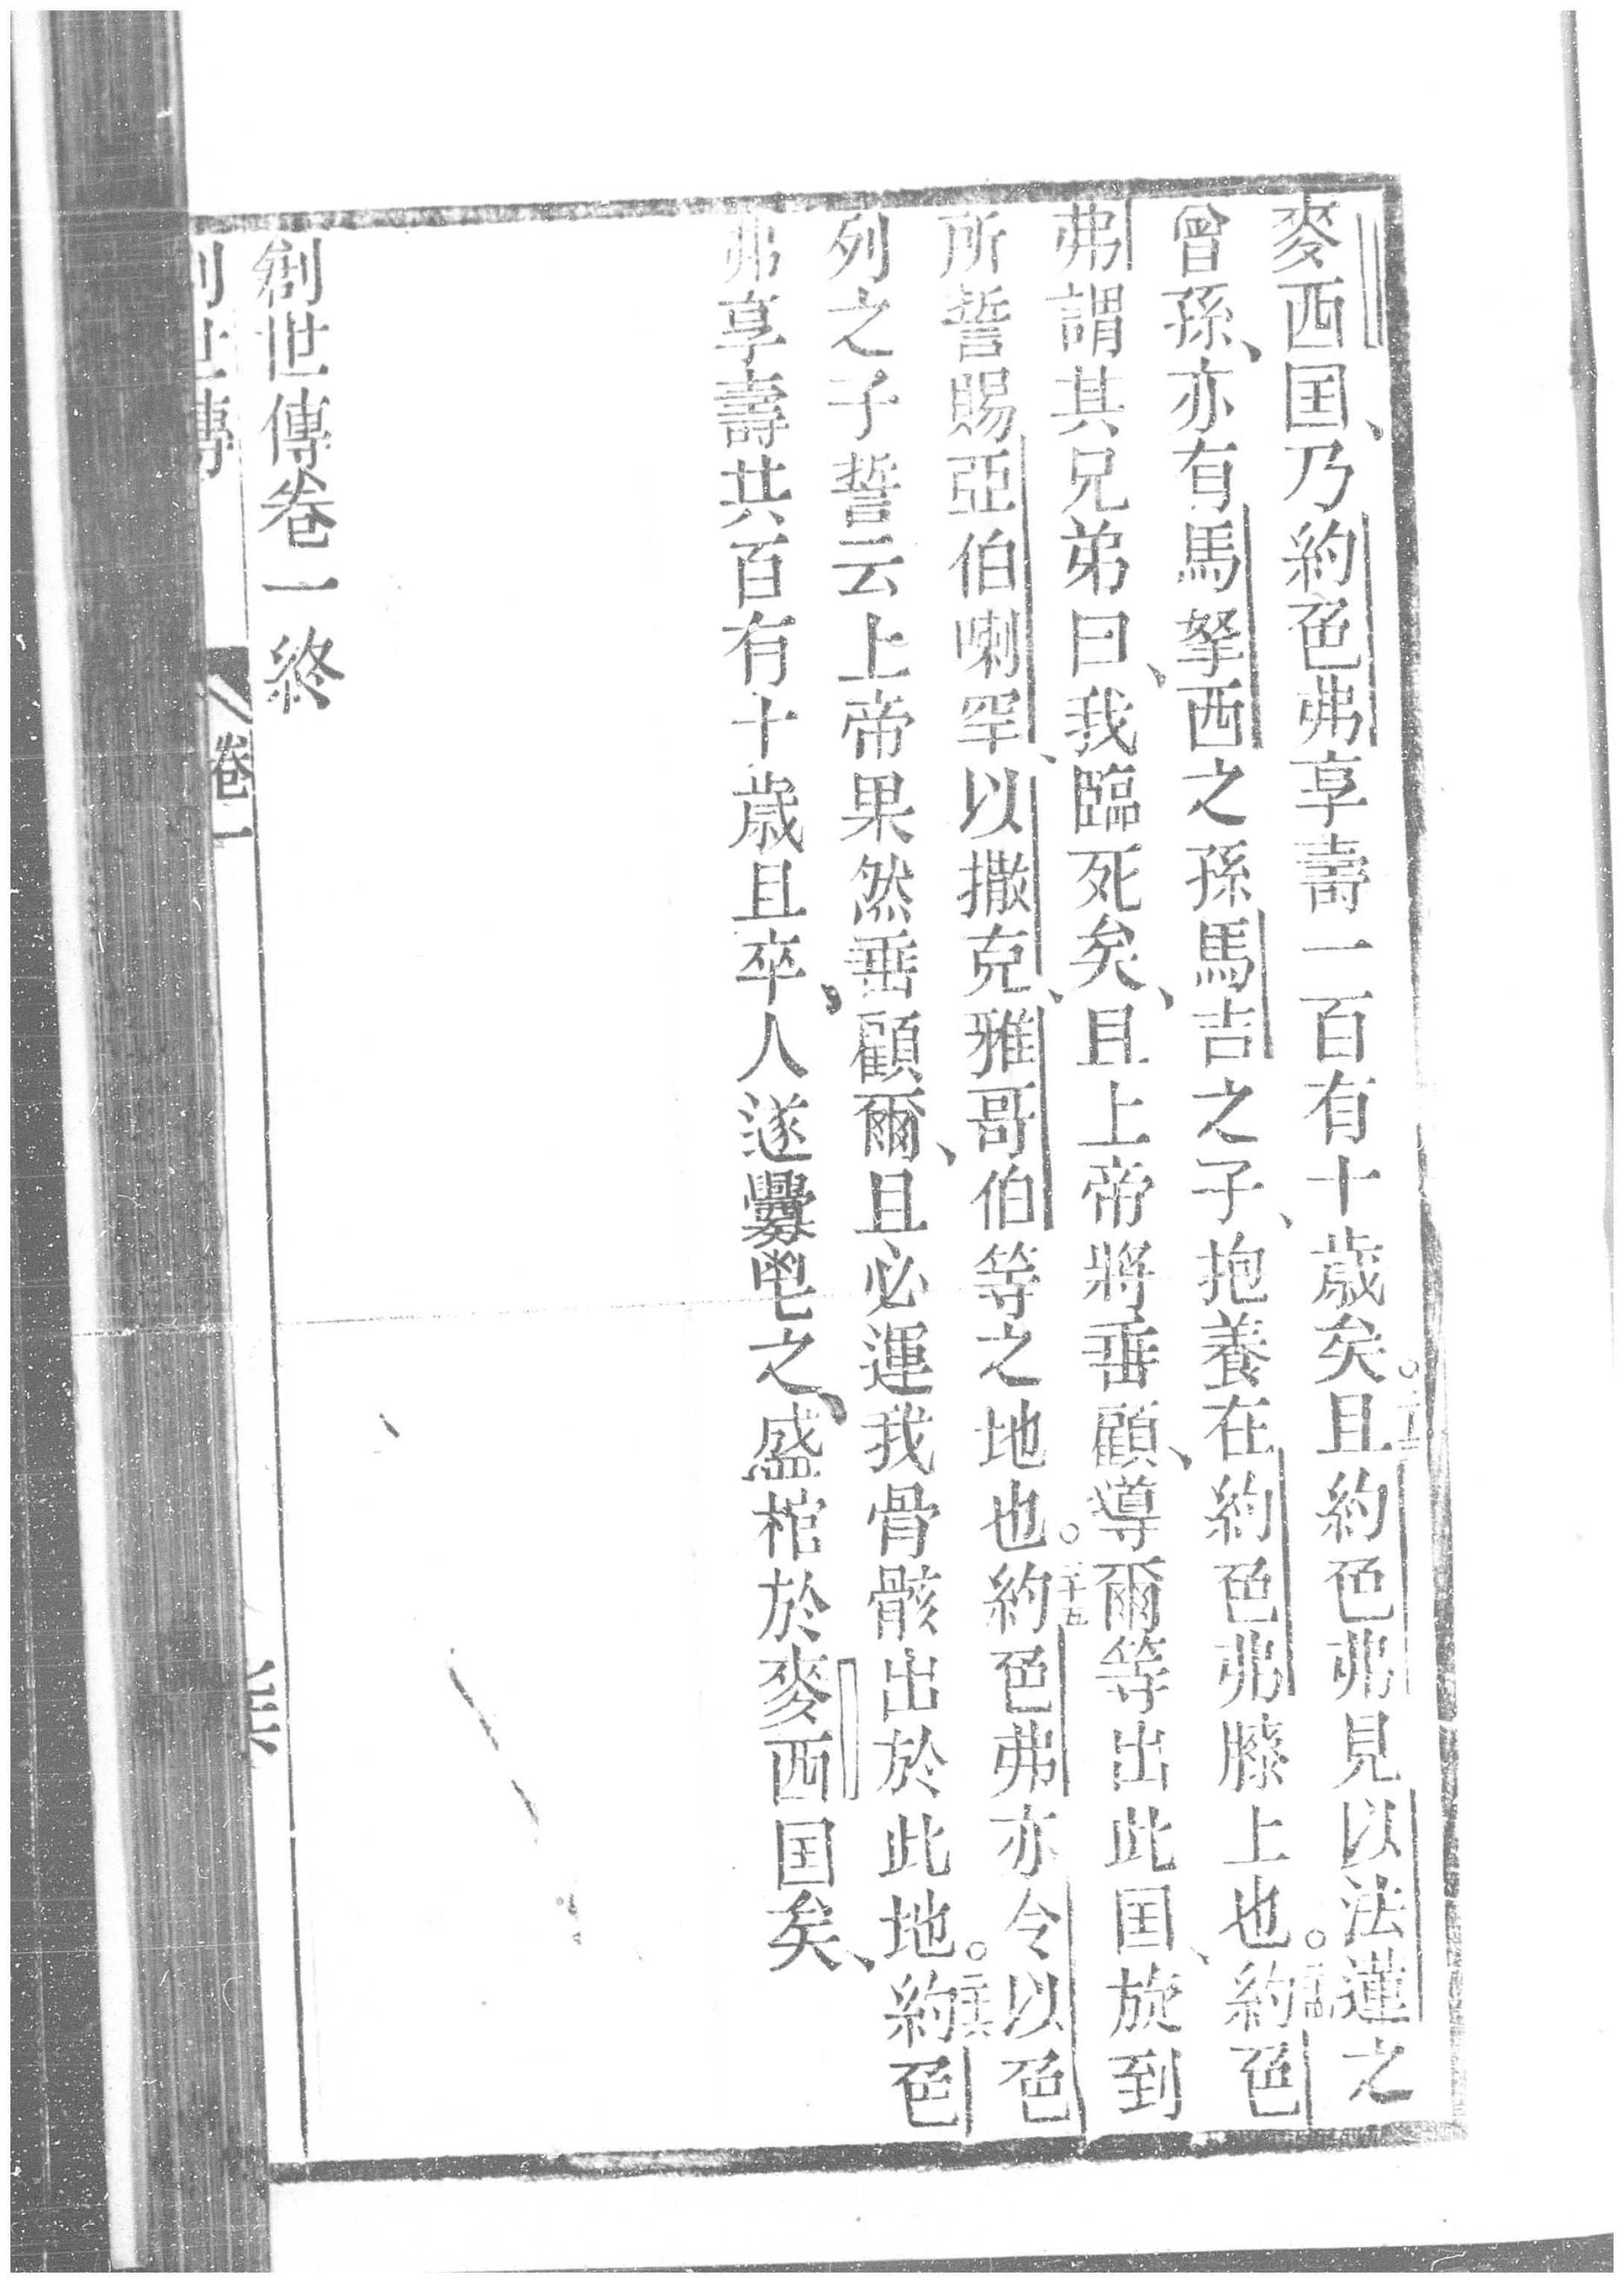 麥西囯、乃約色弗享壽一百有十歲矣。二十三且約色弗見以法蓮之
曾孫、亦有馬拏西之孫馬吉之子、抱養在約色弗膝上也。二十四約色
弗謂其兄弟曰、我臨死矣、且上帝將垂顧、導爾等出此囯、旋到
所誓賜亞伯喇罕、以撒克、雅哥伯等之地也。二十五約色弗亦令以色
列之子誓云上帝果然垂顧爾、且必運我骨骸出於此地。二十六約色
弗享壽共百有十歲且卒、人遂釁鬯之、盛棺於麥西囯矣、
創世傳卷一終
創世傳
卷一